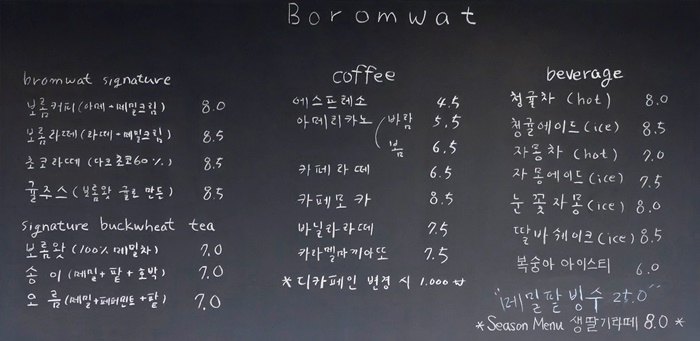 Boromwat
bromwat signature
보롬커피 (아메+메밀크림) 8.0
보롬라떼 (라떼+메밀크림) 8.5
초코라떼 (다크초코60%) 8.5
귤주스 (보롬왓 귤로 만든) 8.5
signature buckwheat tea
보롬왓 (100% 메밀차) 7.0
송이 (메밀+팥+호박) 7.0
오름 (메밀+페퍼민트+팥) 7.0
coffee
에스프레소 4.5
아메리카노 바람 5.5
봄 6.5
카페라떼 6.5
카페모카 8.5
바닐라라떼 7.5
카라멜마끼아또 7.5
* 디카페인 변경 시 1.000₩
beverage
청귤차 (hot) 8.0
청귤에이드 (ice) 8.5
자몽차 (hot) 7.0
자몽에이드 (ice) 7.5
눈꽃자몽 (ice) 8.0
딸바쉐이크 (ice) 8.5
복숭아 아이스티 6.0
"메밀팥빙수 25.0"
* Season Menu 생딸기라떼 8.0 *